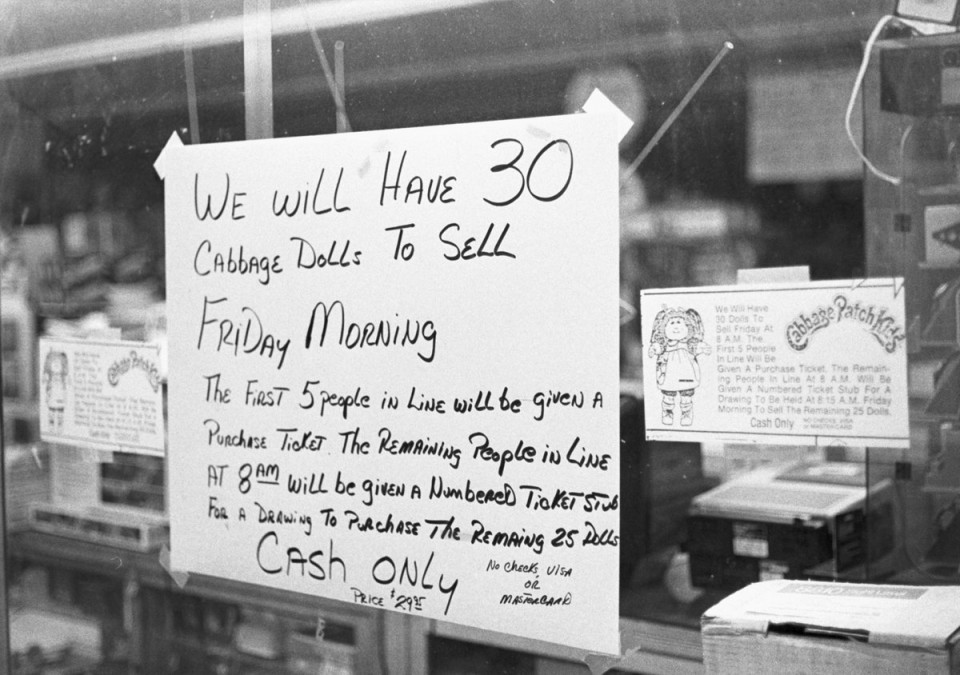 WE WiLL HAVE 30
CABBAGE DOLLS TO SELL
FRiDAY MORNING
THE FIRST 5 PEOPLE iN LINE WiLL bE GiVEN A
PURCHASE TICKET. THE REMAINING PEOPLE iN LINE
AT 8 AM WiLL bE GIVEN A NUMBERED TICKET STUB
FOR A DRAWING TO PURCHASE THE REMAING 25 DOLLS
CASH ONLY
PRICE $29.95
NO CHECKS, VISA
OR
MASTERCARD
We Will Have
30 Dolls To
Sell Friday At
8 A.M. The
First 5 People
In Line Will Be
Given A Purchase Ticket. The Remain-
ing People In Line At 8 A.M. Will Be
Given A Numbered Ticket Stub For A
Drawing To Be Held At 8:15 A.M. Friday
Morning To Sell The Remaining 25 Dolls.
Cash Only
NO CHECKS, VISA
or MASTERCARD
Cabbage Patch Kids
Cabbage Patch Kids